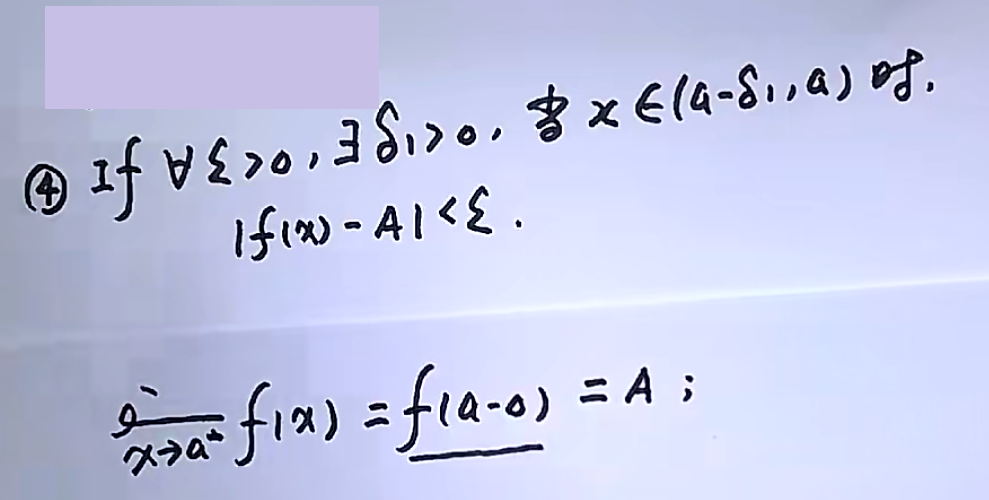 ④ If ∀ε>0, ∃δ₁>0, 当 x∈(a-δ₁,a) 时,
|f(x)-A|<ε.
x→a⁻ f(x) = f(a-0) = A;